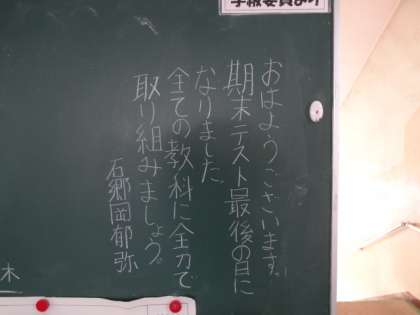 学級委員より
おはようございます。
期末テスト最後の日に
なりました。
全ての教科に全力で
取り組みましょう。
石郷岡郁弥
木